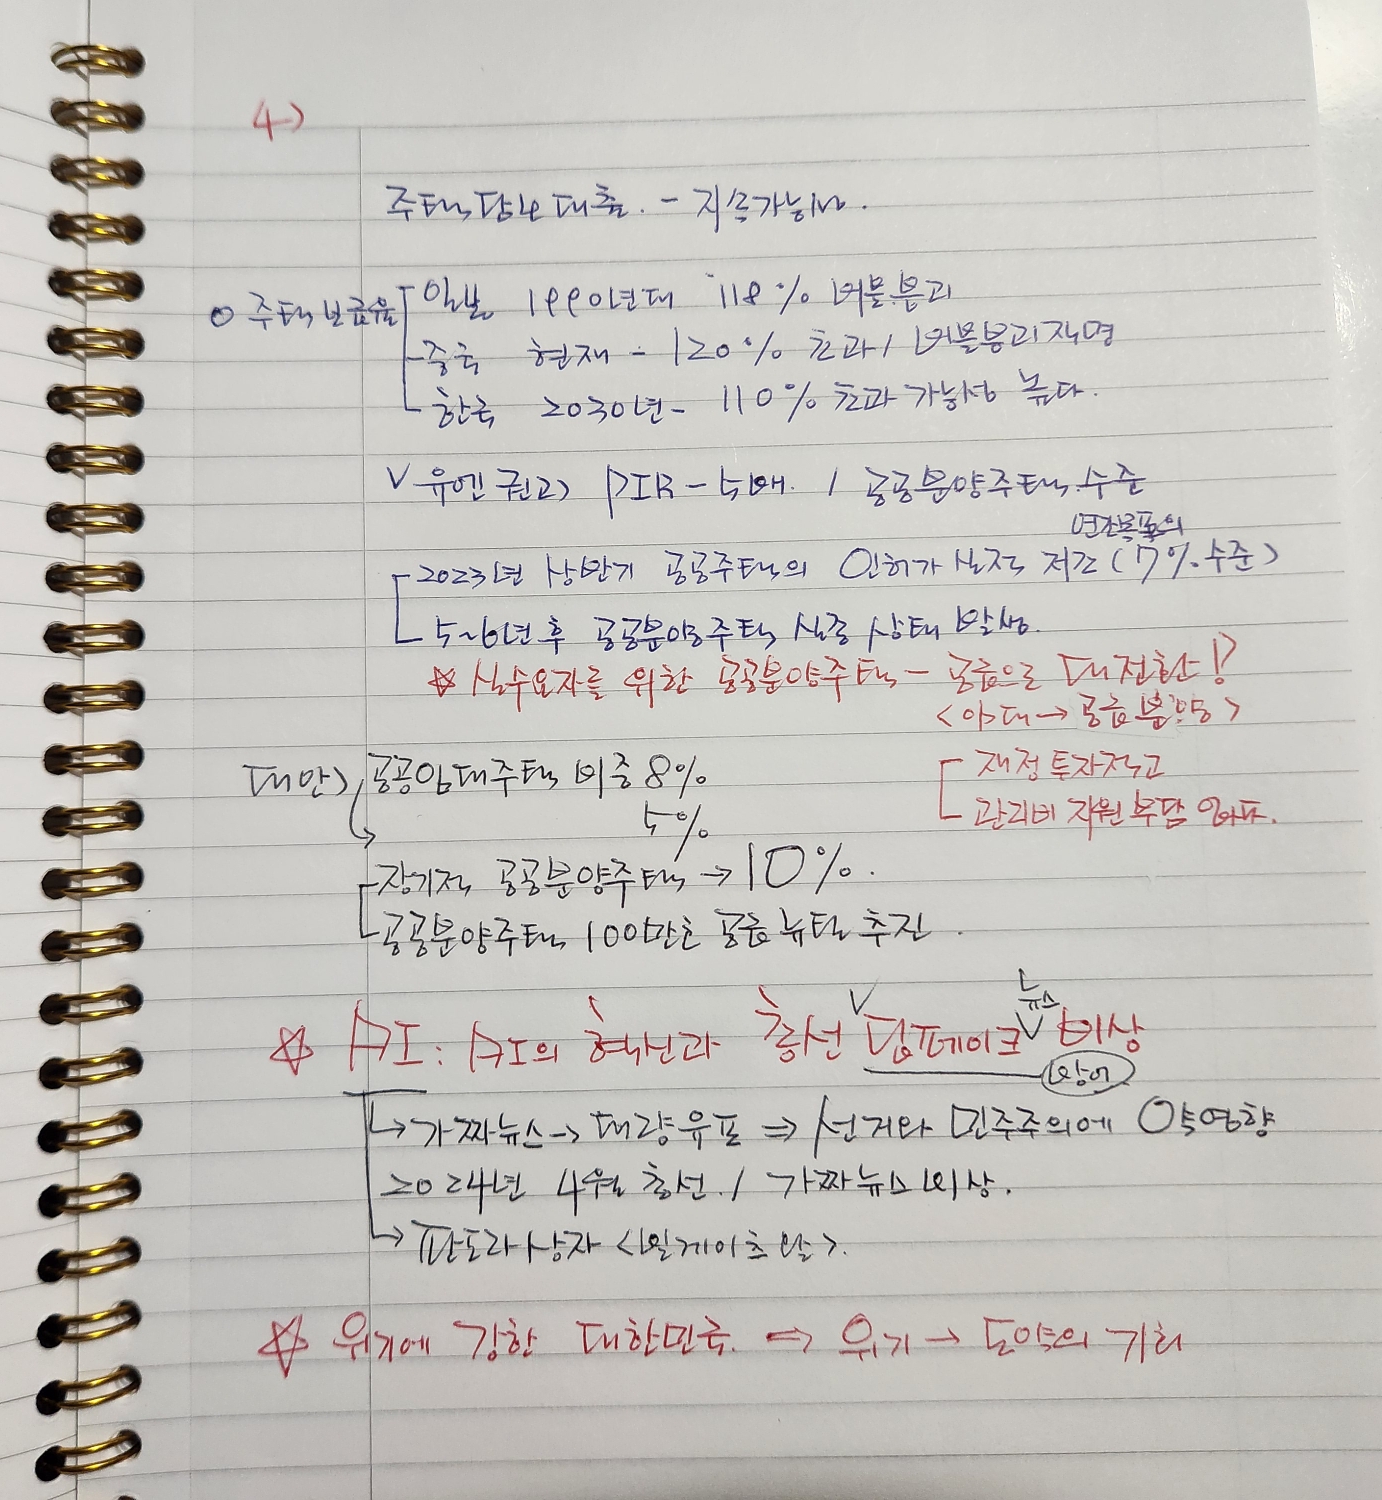 4>
주택담보대출. - 지속가능(?).
o 주택보급율
일본 1990년대 118% 버블붕괴
중국 현재 - 120% 초과 / 버블붕괴 직면
한국 2030년 - 110% 초과 가능성 높다.
V 유엔 권고> PIR - 5배. / 공공분양주택 수준
연간목표의
2023년 상반기 공공주택의 인허가 실적 저조 (7% 수준)
5~6년 후 공공분양주택 실종 상태 발생.
☆ 실수요자를 위한 공공분양주택 - 공급으로 대전환!?
<임대 → 공급분양>
대안> 공공임대주택 비중 8%
5%
재정투자적고
관리비 지원 부담 없다.
장기적 공공분양주택 → 10%.
공공분양주택 100만호 공급 뉴딜 추진.
뉴스
☆ AI: AI의 혁신과 총선 V 딥페이크 V 비상
방어
→ 가짜뉴스 → 대량유포 ⇒ 선거와 민주주의에 악영향
2024년 4월 총선. / 가짜뉴스 비상.
→ 판도라상자 <빌게이츠 말>.
☆ 위기에 강한 대한민국. ⇒ 위기 → 도약의 기회